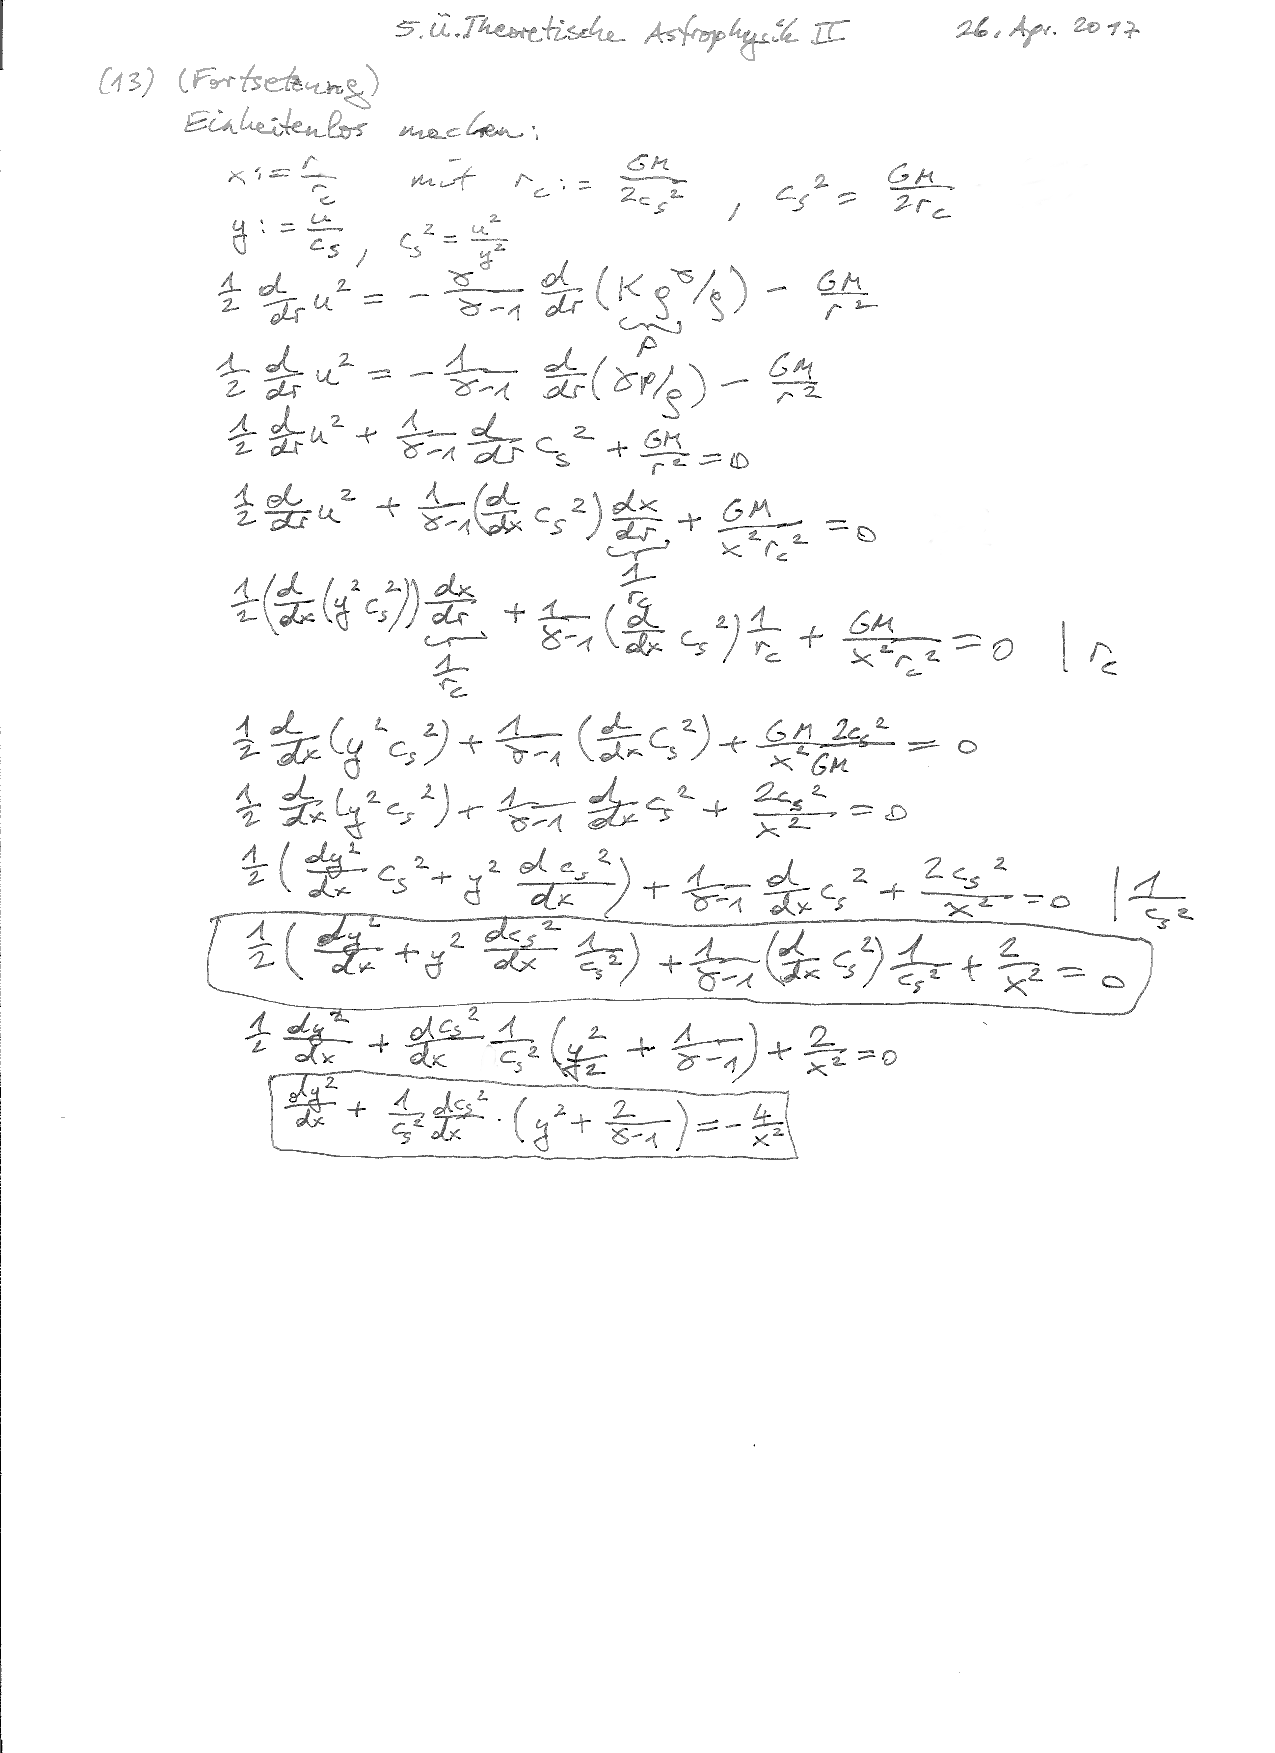 5. Ü. Theoretische Astrophysik II 26. Apr. 2017
(13) (Fortsetzung)
Einheitenlos machen:
x := r/r_c mit r_c := GM/(2c_s²) , c_s² = GM/(2r_c)
y := u/c_s , c_s² = u²/y²
1/2 d/dr u² = - γ/(γ-1) d/dr (K ρ^γ/ρ) - GM/r²
P
1/2 d/dr u² = - 1/(γ-1) d/dr (γP/ρ) - GM/r²
1/2 d/dr u² + 1/(γ-1) d/dr c_s² + GM/r² = 0
1/2 d/dr u² + 1/(γ-1) (d/dx c_s²) dx/dr + GM/(x² r_c²) = 0
1/r_c
1/2 (d/dx (y² c_s²)) dx/dr + 1/(γ-1) (d/dx c_s²) 1/r_c + GM/(x² r_c²) = 0 | r_c
1/r_c
1/2 d/dx (y² c_s²) + 1/(γ-1) (d/dx c_s²) + GM 2c_s²/(x² GM) = 0
1/2 d/dx (y² c_s²) + 1/(γ-1) d/dx c_s² + 2c_s²/x² = 0
1/2 (dy²/dx c_s² + y² dc_s²/dx) + 1/(γ-1) d/dx c_s² + 2c_s²/x² = 0 | 1/c_s²
1/2 (dy²/dx + y² dc_s²/dx 1/c_s²) + 1/(γ-1) (d/dx c_s²) 1/c_s² + 2/x² = 0
1/2 dy²/dx + dc_s²/dx 1/c_s² (y²/2 + 1/(γ-1)) + 2/x² = 0
dy²/dx + 1/c_s² dc_s²/dx · (y² + 2/(γ-1)) = - 4/x²